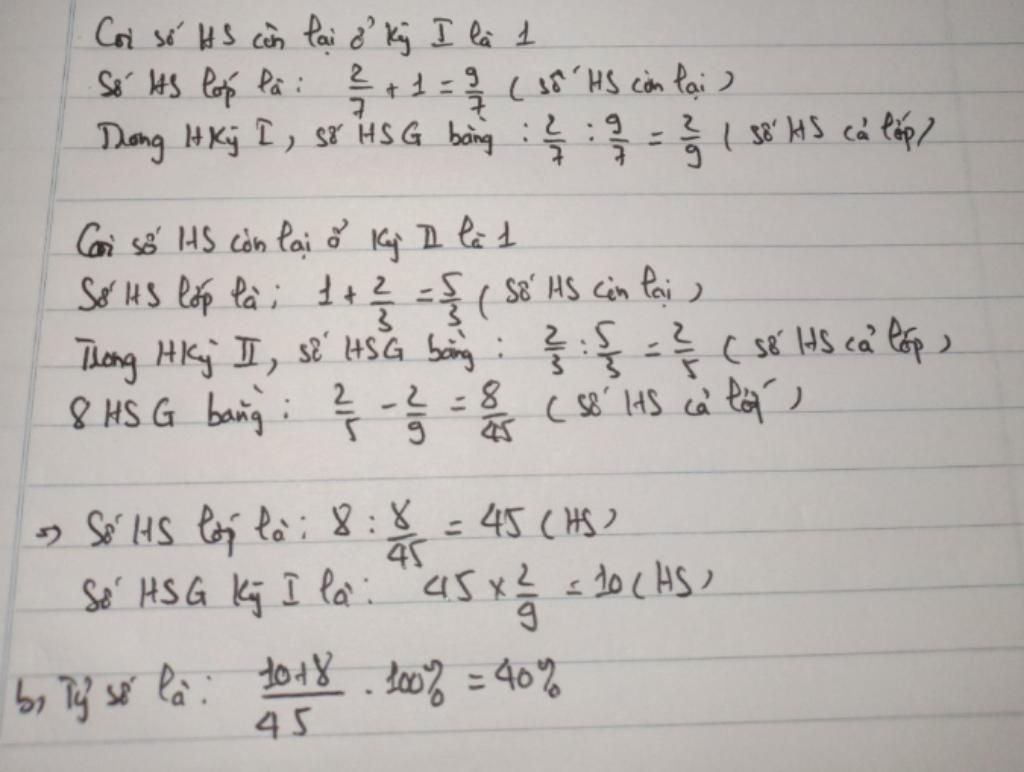 Coi số HS còn lại ở Kỳ I là 1
Số HS lớp là: 2/7 + 1 = 9/7 (số HS còn lại)
Trong HKỳ I, số HSG bằng : 2/7 : 9/7 = 2/9 (số HS cả lớp)
Coi số HS còn lại ở Kỳ II là 1
Số HS lớp là: 1 + 2/3 = 5/3 (số HS còn lại)
Trong HKỳ II, số HSG bằng : 2/3 : 5/3 = 2/5 (số HS cả lớp)
8 HSG bằng : 2/5 - 2/9 = 8/45 (số HS cả lớp)
=> Số HS lớp là: 8 : 8/45 = 45 (HS)
Số HSG Kỳ I là: 45 x 2/9 = 10 (HS)
b, Tỷ số là: (10+8)/45 . 100% = 40%